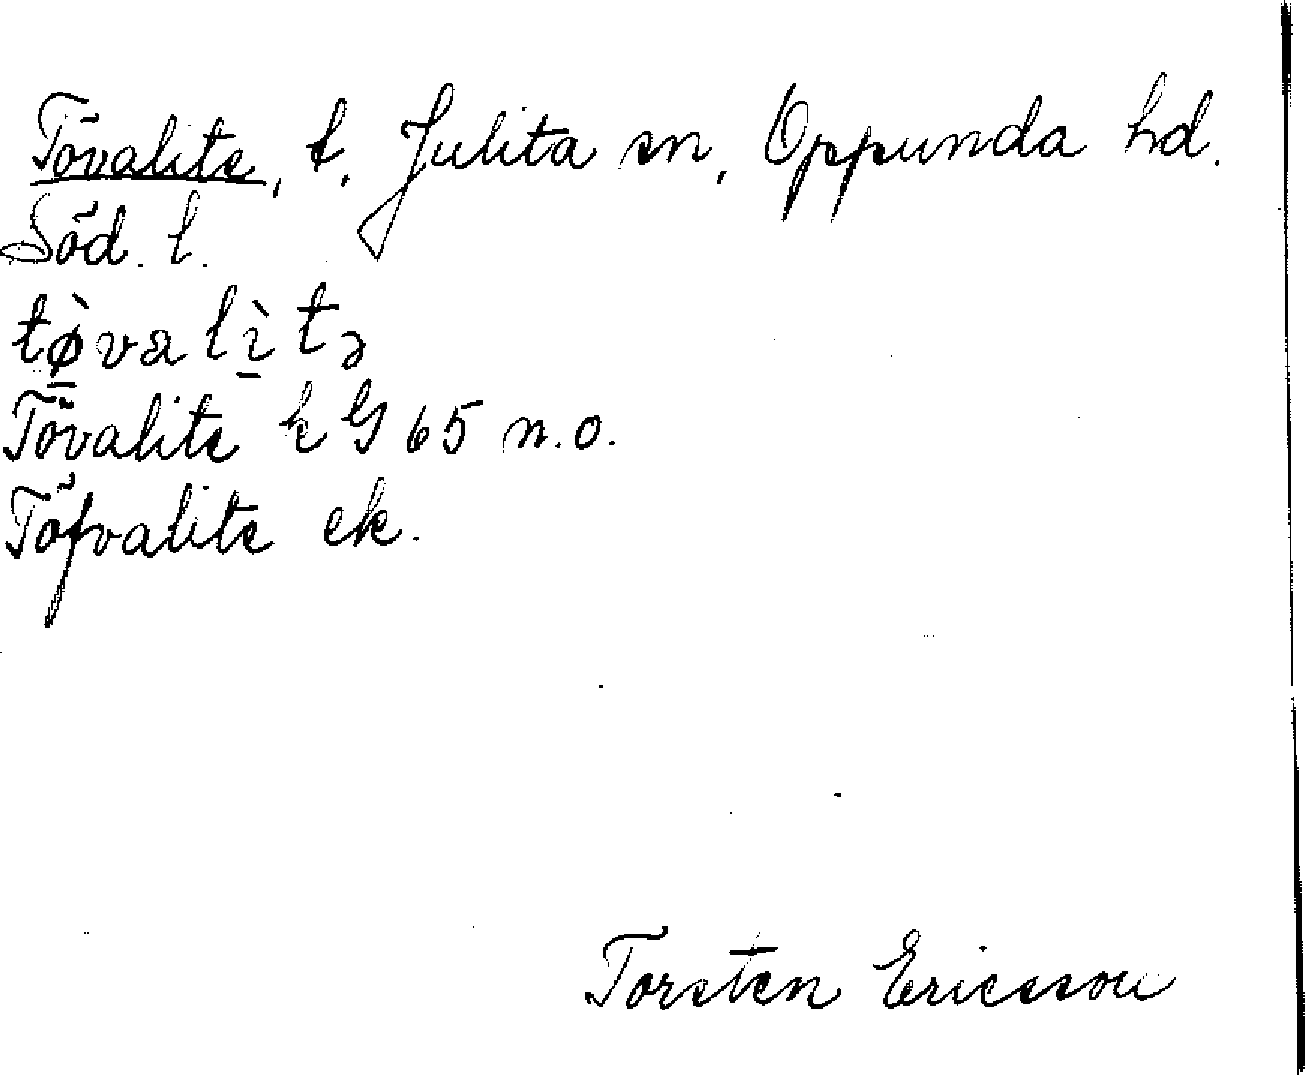 Tövalite, t. Julita sn, Oppunda hd.
Söd. l.
tø̀valìtə
Tövalite k G 65 n.o.
Töfvalite ek.
Torsten Ericsson